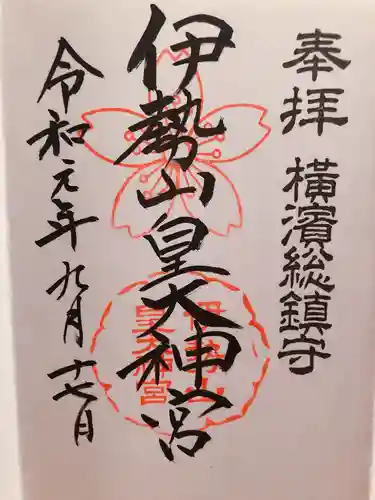 奉拝 橫濱総鎮守
伊勢山皇大神宮
令和元年九月十七日
伊勢山
皇大神宮